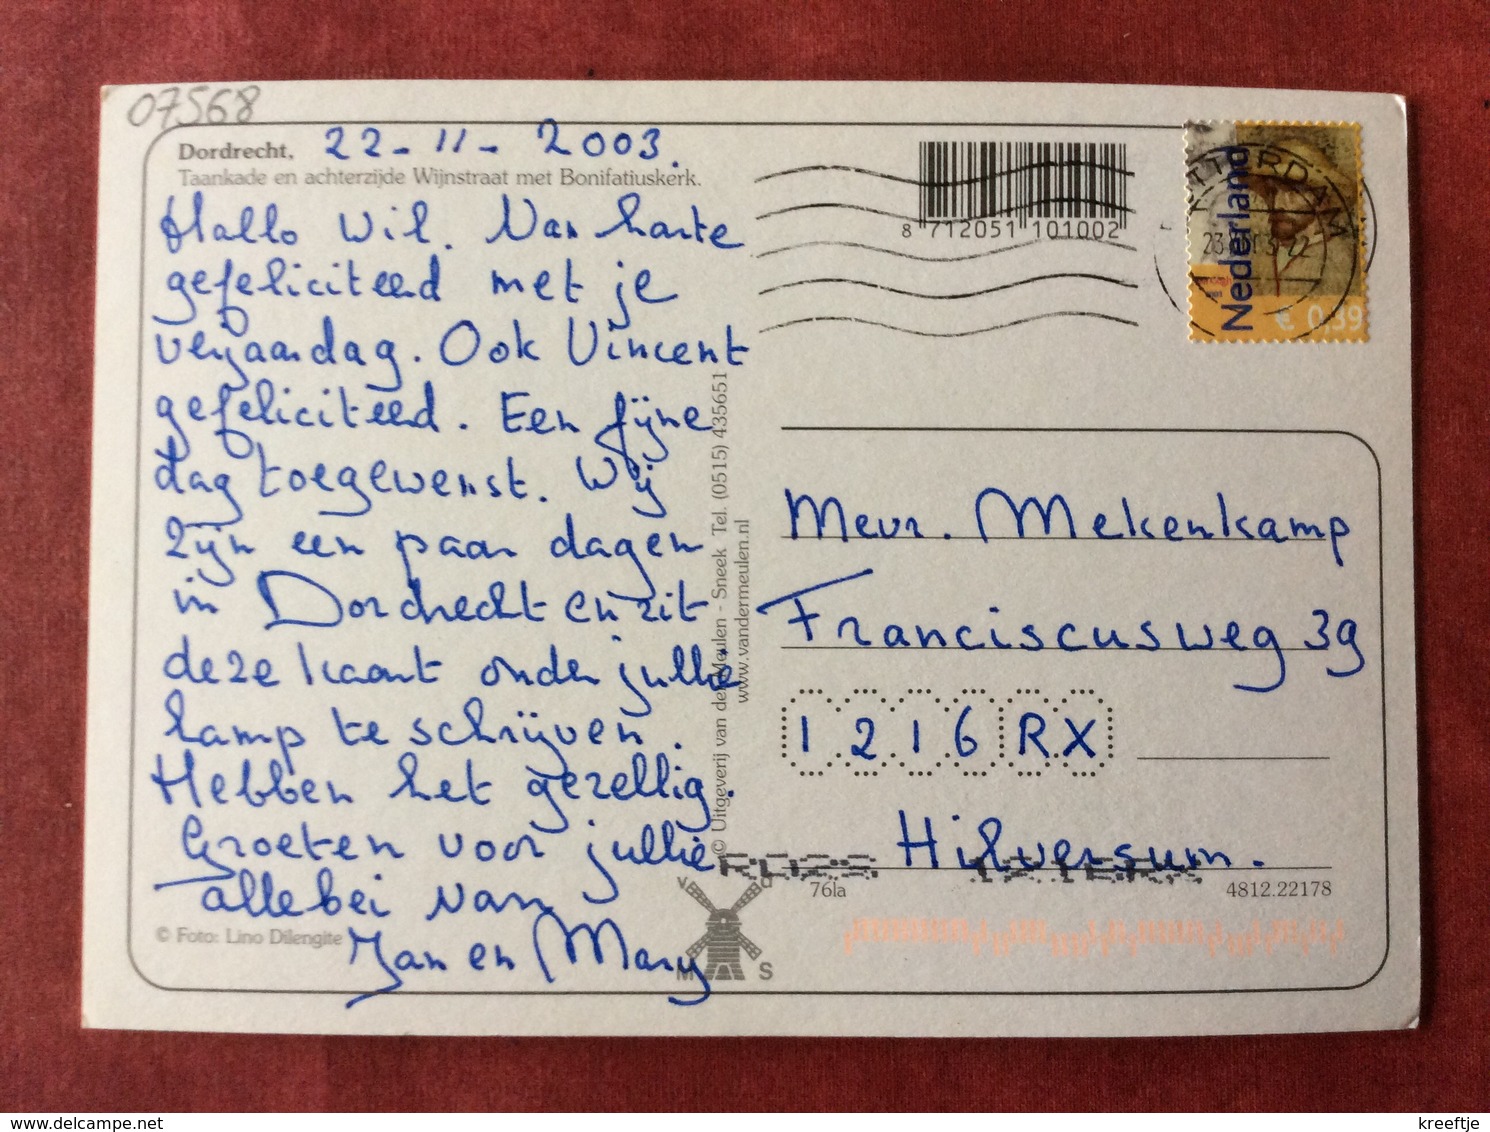 07568
Dordrecht, 22-11-2003.
Taankade en achterzijde Wijnstraat met Bonifatiuskerk.
Hallo Wil. Van harte
gefeliciteerd met je
verjaardag. Ook Vincent
gefeliciteerd. Een fijne
dag toegewenst. Wij
zijn een paar dagen
in Dordrecht en zit
deze kaart onder jullie
lamp te schrijven.
Hebben het gezellig.
Groeten voor jullie
allebei van
Jan en Mary
© Foto: Lino Dilengite
© Uitgeverij van der Meulen - Sneek Tel. (0515) 435651
www.vandermeulen.nl
M S
8 712051 101002
Nederland
€ 0,39
Mevr. Mekenkamp
Franciscusweg 39
1216 RX
Hilversum.
76la
4812.22178
kreeftje